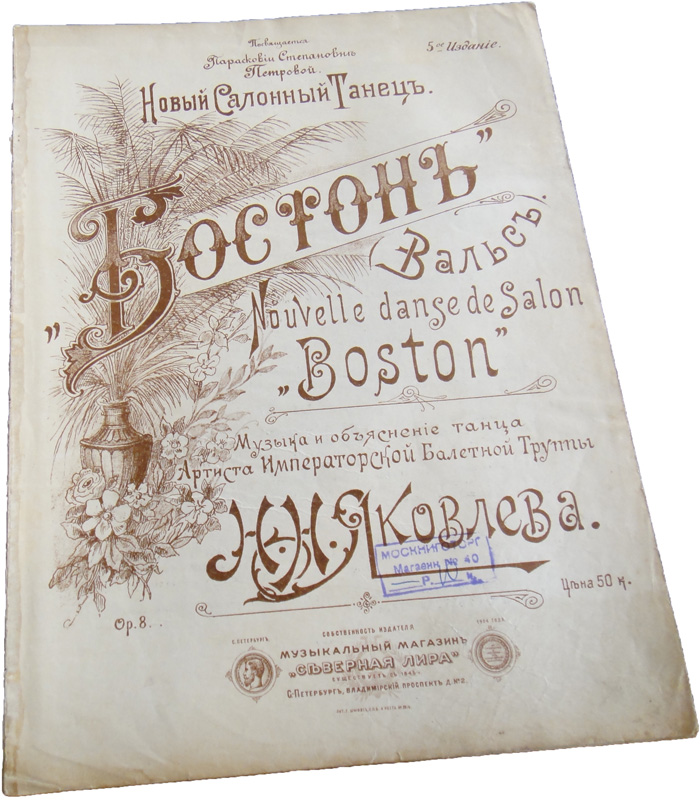 Посвящается
Парасковіи Степановнѣ
Петровой.
5ое Изданіе.
Новый Салонный Танецъ.
„Бостонъ”
(Вальсъ).
Nouvelle danse de Salon
„Boston”
Музыка и объясненіе танца
Артиста Императорской Балетной Труппы
Н.Н. Яковлева.
МОСКНИГОТОРГ
Магазин № 40
Р. К.
Цѣна 50 к.
Op. 8.
СОБСТВЕННОСТЬ ИЗДАТЕЛЯ
С. ПЕТЕРБУРГЪ.
МУЗЫКАЛЬНЫЙ МАГАЗИНЪ
„СѢВЕРНАЯ ЛИРА”
СУЩЕСТВУЕТЪ СЪ 1845
С-ПЕТЕРБУРГЪ, ВЛАДИМІРСКІЙ ПРОСПЕКТЪ Д. №2.